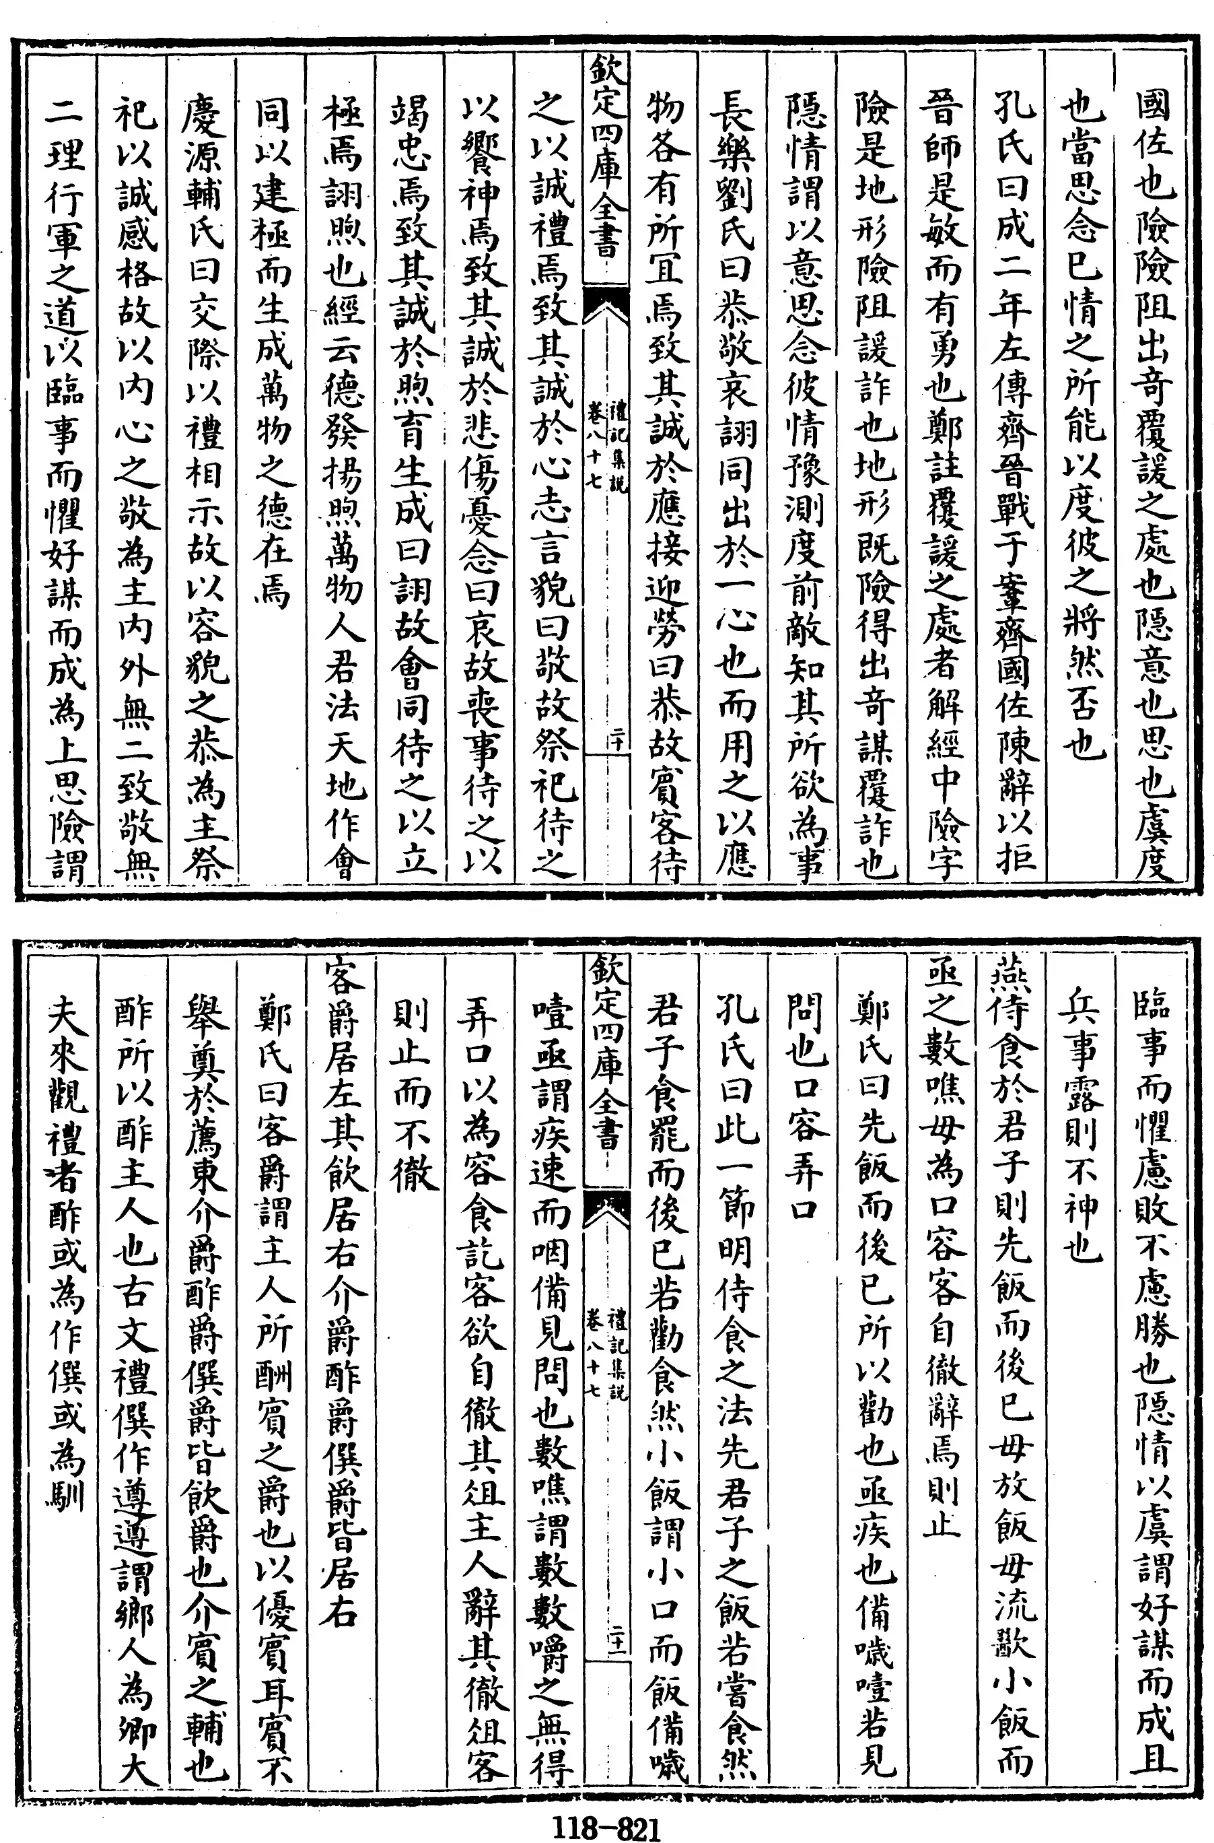 國佐也險險阻出竒覆諼之處也隠意也思也虞度
也當思念已情之所能以度彼之將然否也
孔氏曰成二年左傳齊晉戰于鞌齊國佐陳辭以拒
晉師是敏而有勇也鄭註覆諼之處者解經中險字
險是地形險阻諼詐也地形既險得出竒謀覆詐也
隠情謂以意思念彼情豫測度前敵知其所欲為事
長樂劉氏曰恭敬哀詡同出於一心也而用之以應
物各有所宜焉致其誠於應接迎勞曰恭故賓客待
欽定四庫全書
禮記集説
卷八十七
二十
之以誠禮焉致其誠於心志言貌曰敬故祭祀待之
以饗神焉致其誠於悲傷憂念曰哀故喪事待之以
竭忠焉致其誠於煦育生成曰詡故會同待之以立
極焉詡煦也經云德發揚煦萬物人君法天地作會
同以建極而生成萬物之德在焉
慶源輔氏曰交際以禮相示故以容貌之恭為主祭
祀以誠感格故以内心之敬為主内外無二致敬無
二理行軍之道以臨事而懼好謀而成為上思險謂
臨事而懼慮敗不慮勝也隠情以虞謂好謀而成且
兵事露則不神也
燕侍食於君子則先飯而後已毋放飯毋流歠小飯而
亟之數噍毋為口容客自徹辭焉則止
鄭氏曰先飯而後已所以勸也亟疾也備噦噎若見
問也口容弄口
孔氏曰此一節明侍食之法先君子之飯若嘗食然
君子食罷而後已若勸食然小飯謂小口而飯備噦
欽定四庫全書
禮記集説
卷八十七
二十一
噎亟謂疾速而咽備見問也數噍謂數數嚼之無得
弄口以為容食訖客欲自徹其俎主人辭其徹俎客
則止而不徹
客爵居左其飲居右介爵酢爵僎爵皆居右
鄭氏曰客爵謂主人所酬賓之爵也以優賓耳賓不
舉奠於薦東介爵酢爵僎爵皆飲爵也介賓之輔也
酢所以酢主人也古文禮僎作遵遵謂鄉人為卿大
夫來觀禮者酢或為作僎或為馴
118-821